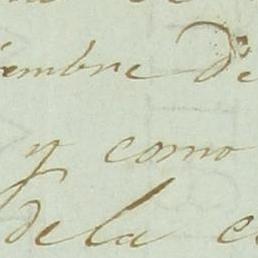 embre de
y como
de la